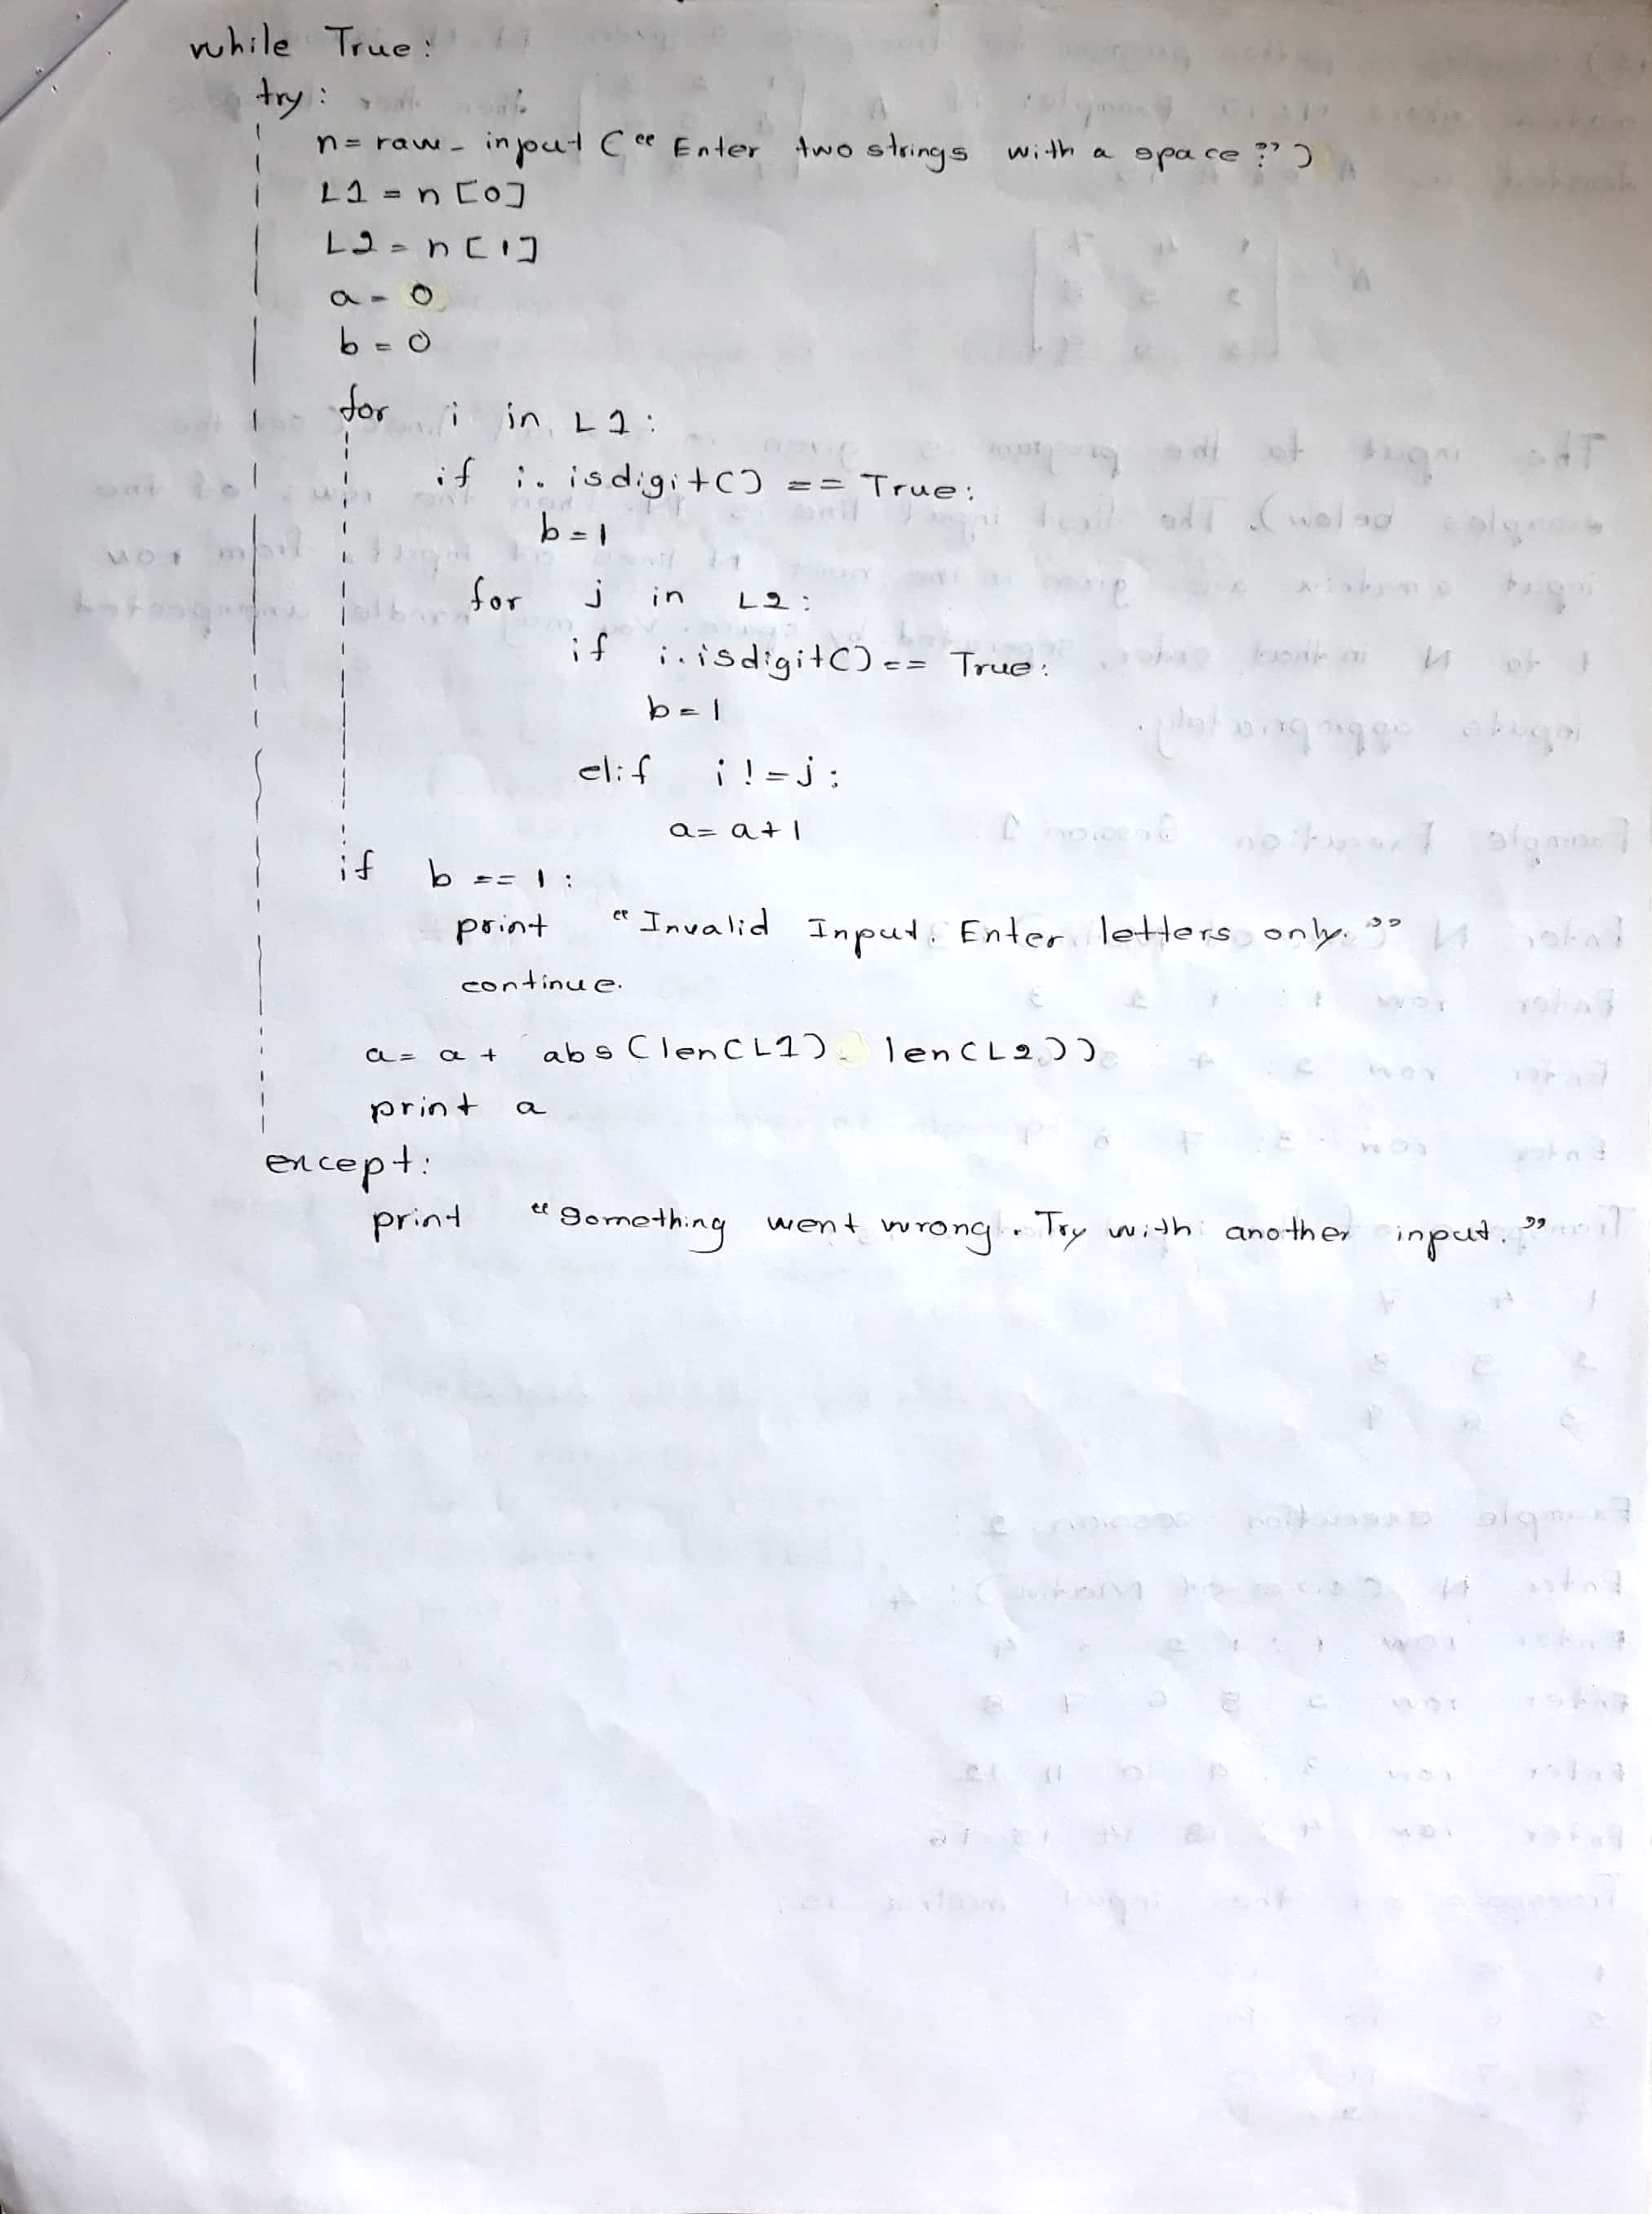 while True:
try:
n= raw_input (“ Enter two strings with a space:”)
L1 = n [0]
L2 = n [1]
a = 0
b = 0
for i in L1:
if i.isdigit() == True:
b = 1
for j in L2:
if i.isdigit() == True:
b = 1
elif i != j:
a = a+1
if b == 1:
print “Invalid Input. Enter letters only.”
continue.
a = a + abs (len(L1) len(L2))
print a
except:
print “Something went wrong. Try with another input.”